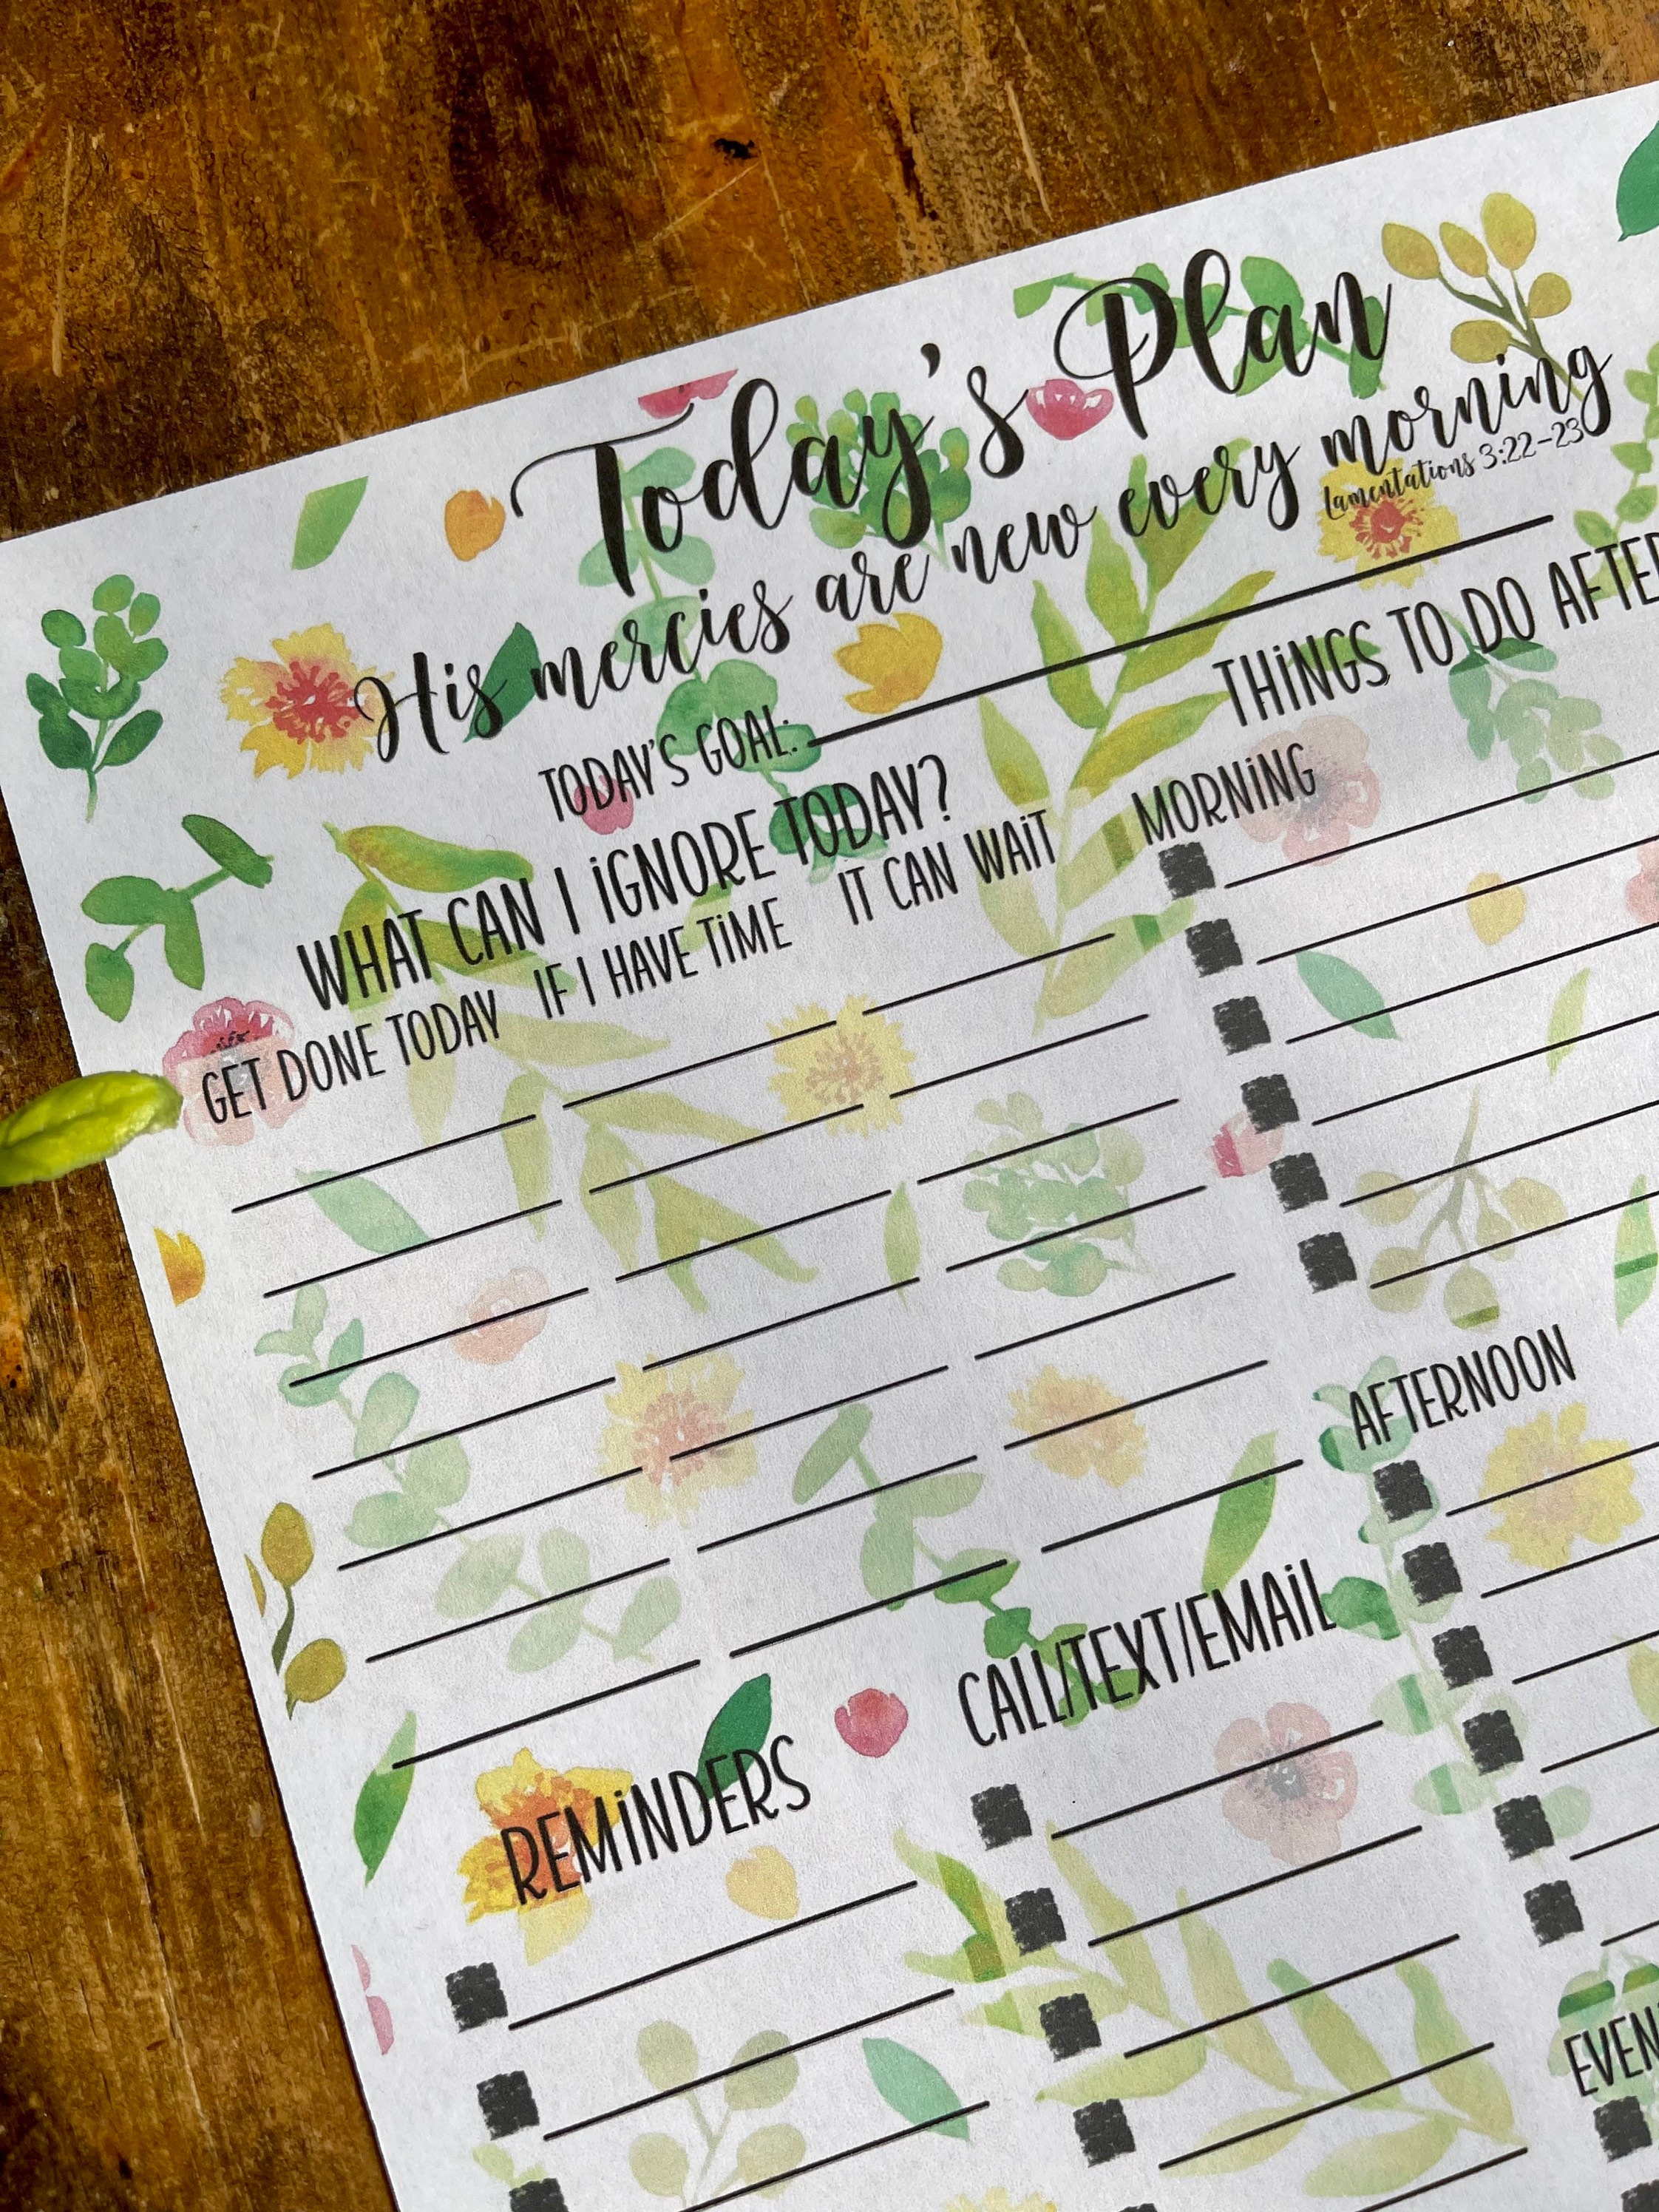 Today's Plan
His mercies are new every morning
Lamentations 3:22-23
TODAY'S GOAL:
WHAT CAN I IGNORE TODAY?
GET DONE TODAY IF I HAVE TIME IT CAN WAIT
THINGS TO DO AFTER
MORNING
AFTERNOON
REMINDERS
CALL/TEXT/EMAIL